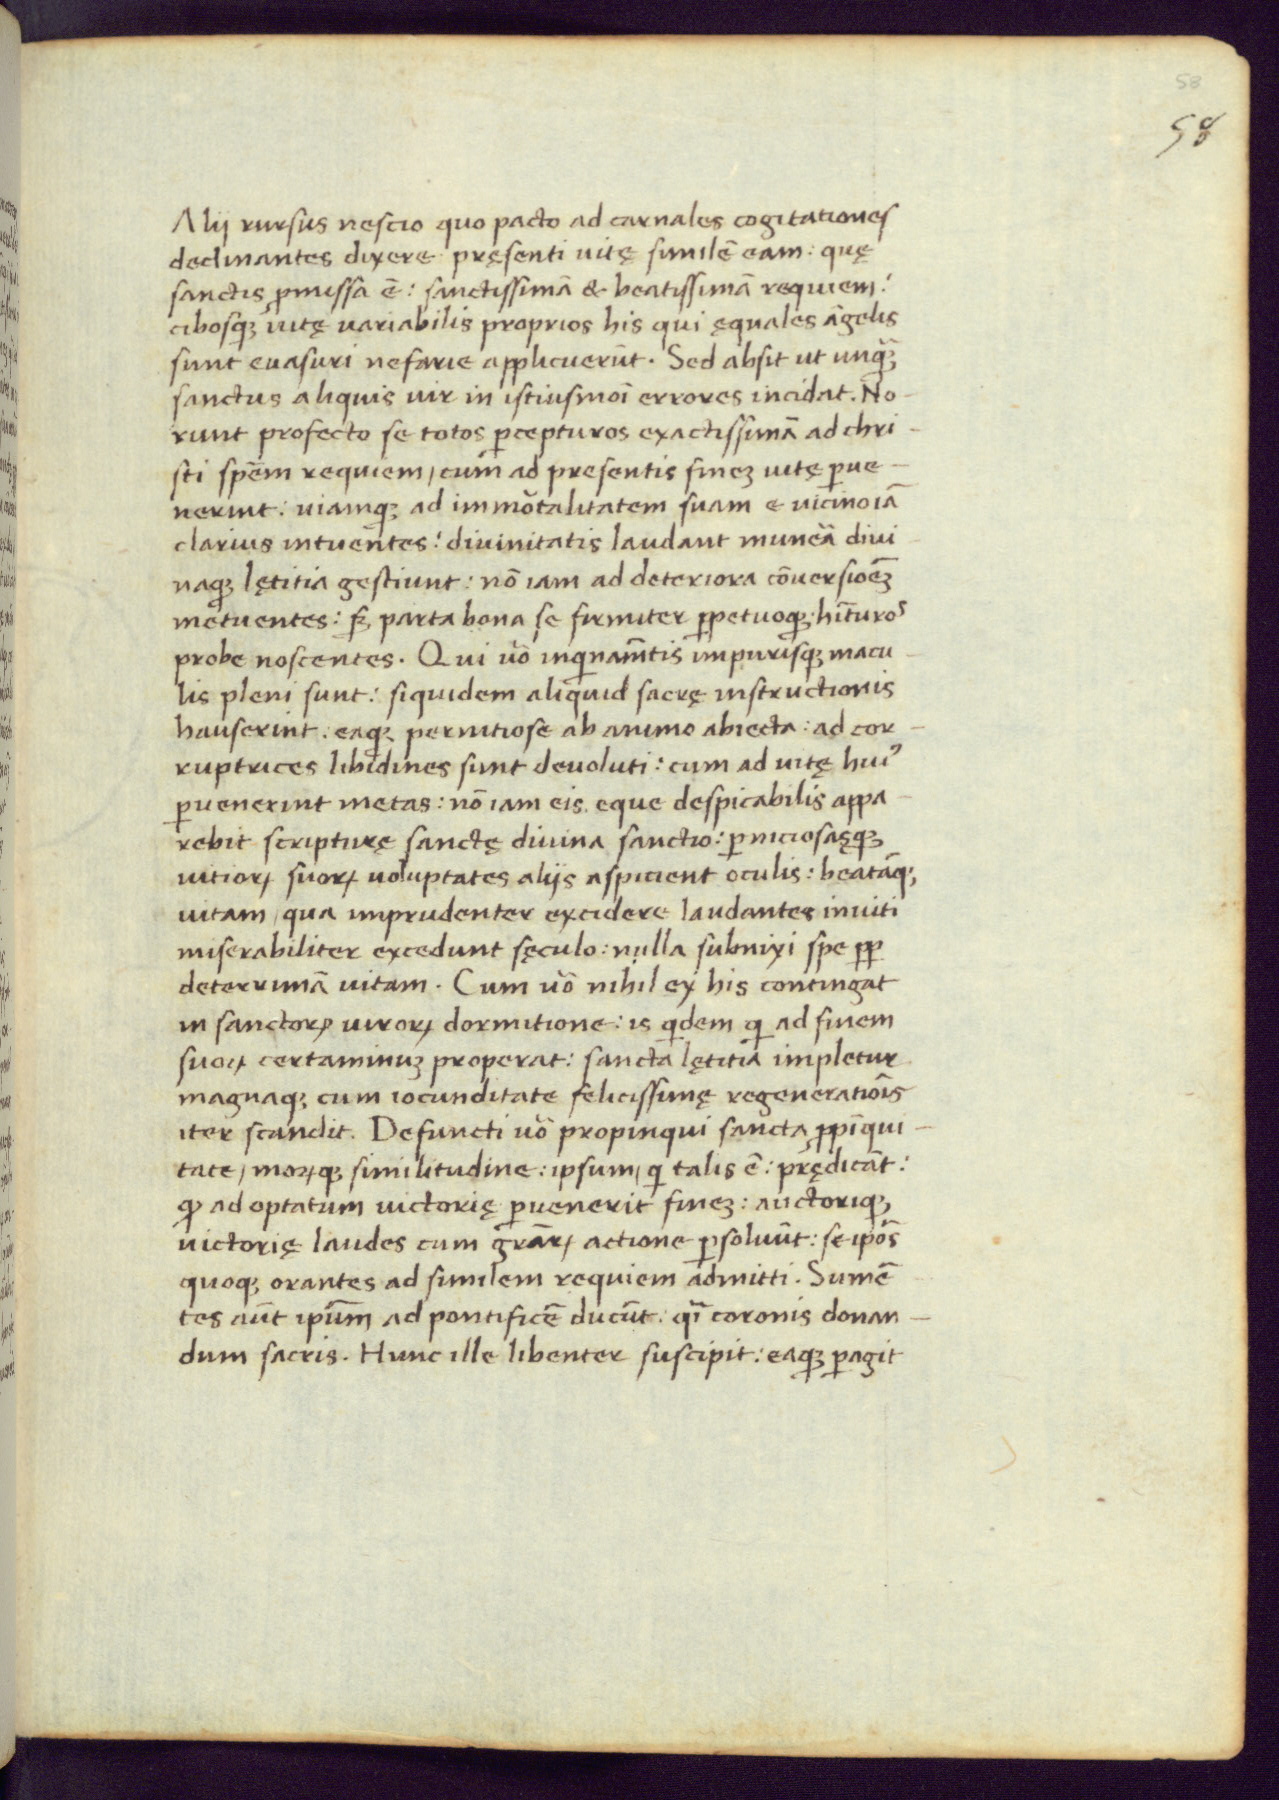 58
58
Alij rursus nescio quo pacto ad carnales cogitationes
declinantes dixere pręsenti uitę similē eam: quę
sanctis ꝓmissa ē: sanctissimā & beatissimā requiem:
cibosqꝫ uitę uariabilis proprios his qui ęquales āgelis
sunt euasuri nefarie applicuerūt. Sed absit ut unq̄ꝫ
sanctus aliquis uir in istiusmoī errores incidat. No-
runt profecto se totos ꝑcepturos exactissimā ad chri-
sti spēm requiem, cum ad presentis fineꝫ uitę ꝑue-
nerint: uiamqꝫ ad immōtalitatem suam e uicino iā
clarius intuentes: diuinitatis laudant munera diui-
naqꝫ lętitia gestiunt: nō iam ad deteriora cōuersioēꝫ
metuentes: sꝫ parta bona se firmiter ꝑpetuoqꝫ hīturos
probe noscentes. Qui uō inqinam̄tis impurisqꝫ macu-
lis pleni sunt: siquidem aliquid sacrę instructionis
hauserint. eaqꝫ pernitiose ab animo abiecta: ad cor-
ruptrices libidines sunt deuoluti: cum ad uitę huiꝰ
ꝑuenerint metas: nō iam eis eque despicabilis appa-
rebit scripturę sanctę diuina sanctio: ꝑniciosaęqꝫ
uitioꝝ suoꝝ uoluptates alijs aspicient oculis: beatāqꝫ
uitam, qua imprudenter excidere laudantes inuiti
miserabiliter excedunt sęculo: nulla subnixi spe ꝓꝑ
deterrimā uitam. Cum uō nihil ex his contingat
in sanctoꝝ uiroꝝ dormitione: is qdem q ad finem
suoꝝ certaminuꝫ properat: sancta lętitia impletur
magnaqꝫ cum iocunditate felicissimę regeneratiōis
iter scandit. Defuncti uō propinqui sancta ꝓpīqui-
tate, moꝝqꝫ similitudine: ipsum, q talis ē: prędicāt:
ꝙ ad optatum uictorię ꝑuenerit fineꝫ: auctoriqꝫ
uictorię laudes cum gr̄aꝝ actione ꝑsoluūt: se ip̄os
quoqꝫ orantes ad similem requiem admitti. Sumē-
tes aūt ip̄um ad pontificē ducūt: q̄ī coronis donan-
dum sacris. Hunc ille libenter suscipit: eaqꝫ ꝑagit